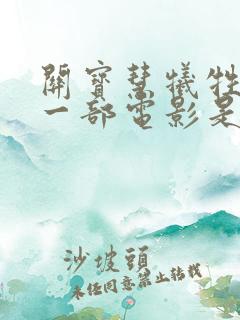 關寶慧犧牲
一部電影是
沙坡頭
未经同意禁止转载